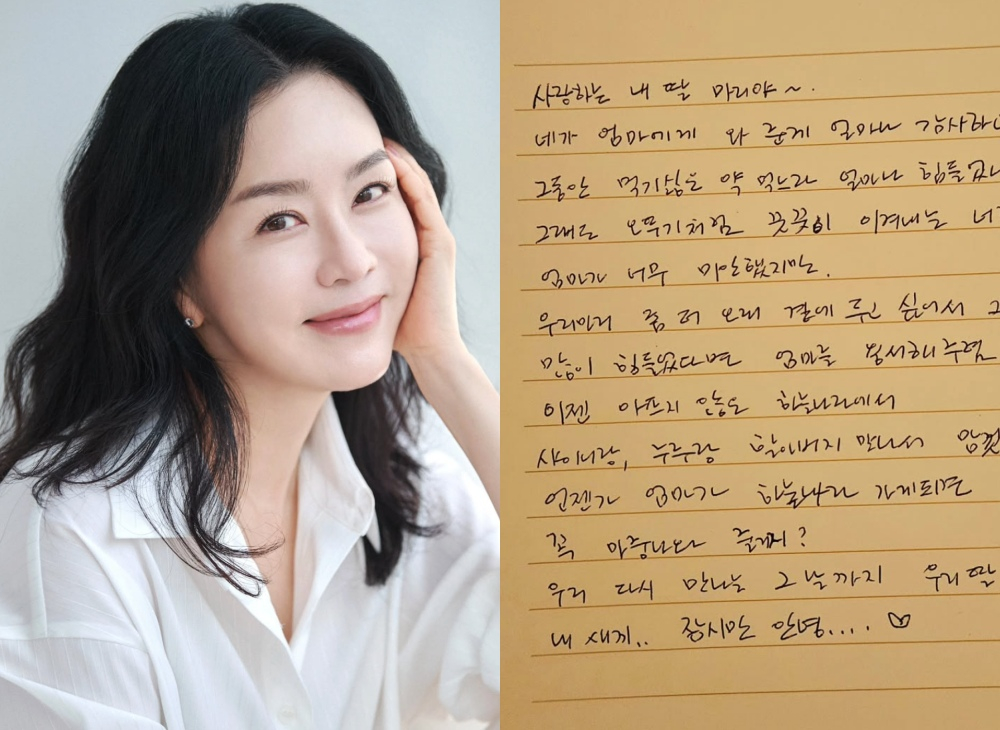 사랑하는 내 딸 마리야~.
네가 엄마에게 와 준게 얼마나 감사하
그동안 먹기싫은 약 먹느라 얼마나 힘들었
그래도 오뚜기처럼 꿋꿋이 이겨내는 너
엄마가 너무 미안했지만.
우리마리 좀 더 오래 곁에 두고 싶어서 그
많이 힘들었다면 엄마를 용서해주렴
이젠 아프지 않은 하늘나라에서
사이니랑, 누누랑 할아버지 만나서
언젠가 엄마가 하늘나라 가게되면
꼭 마중나와 줄꺼지?
우리 다시 만나는 그날까지 우리딸
내 새끼.. 잠시만 안녕....